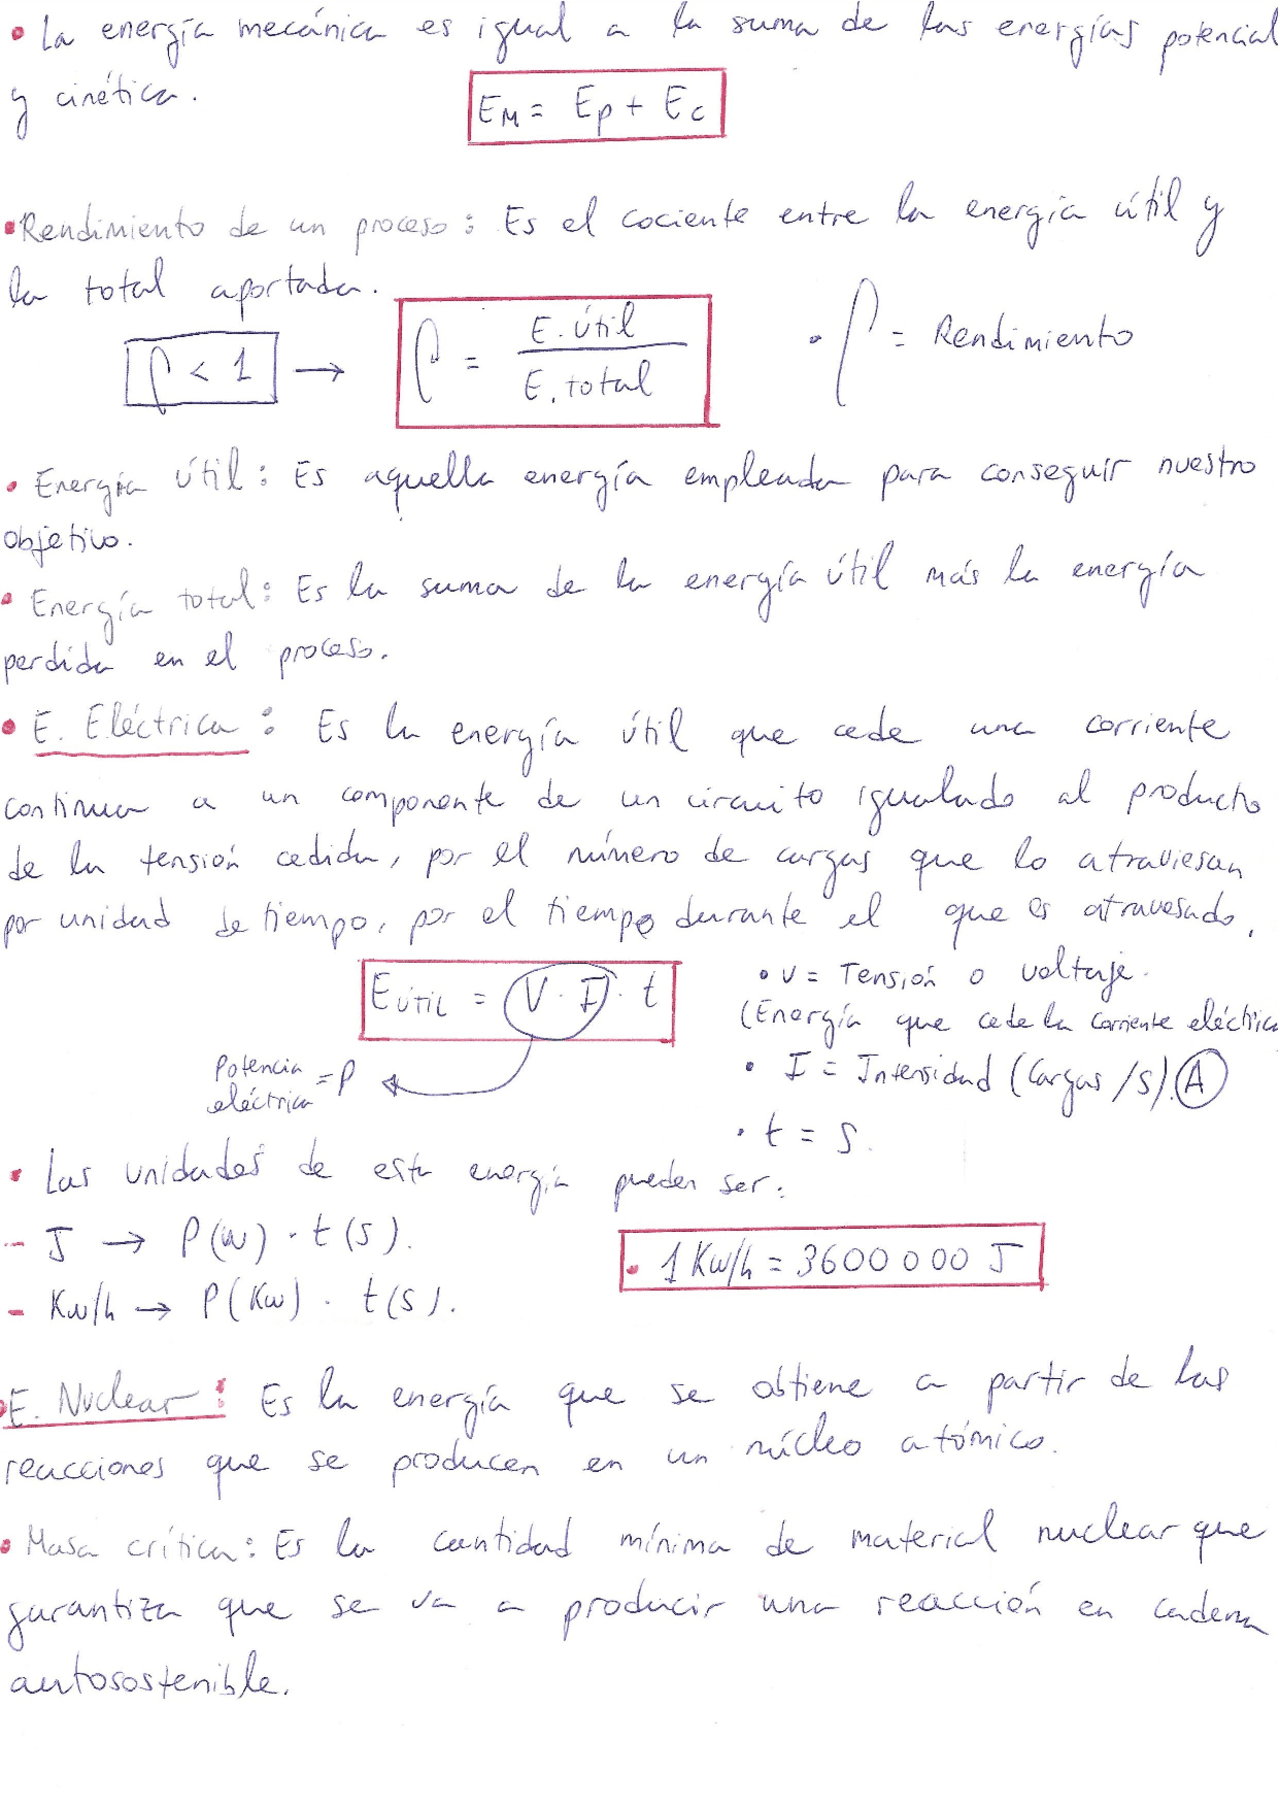 • La energía mecánica es igual a la suma de las energías potencial
y cinética.
E_M = E_p + E_c
• Rendimiento de un proceso: Es el cociente entre la energía útil y
la total aportada.
ρ < 1 → ρ = E. útil / E. total
• ρ = Rendimiento
• Energía útil: Es aquella energía empleada para conseguir nuestro
objetivo.
• Energía total: Es la suma de la energía útil más la energía
perdida en el proceso.
• E. Eléctrica: Es la energía útil que cede una corriente
continua a un componente de un circuito igualado al producto
de la tensión cedida, por el número de cargas que lo atraviesan
por unidad de tiempo, por el tiempo durante el que es atravesado.
E útil = V · I · t
• V = Tensión o voltaje.
(Energía que cede la corriente eléctrica
Potencia eléctrica = P
• I = Intensidad (Cargas/s). A
• t = s.
• Las unidades de esta energía pueden ser:
- J → P(W) · t(s).
- Kw/h → P(Kw) · t(s).
• 1 Kw/h = 3600 000 J
• E. Nuclear: Es la energía que se obtiene a partir de las
reacciones que se producen en un núcleo atómico.
• Masa crítica: Es la cantidad mínima de material nuclear que
garantiza que se va a producir una reacción en cadena
autosostenible.